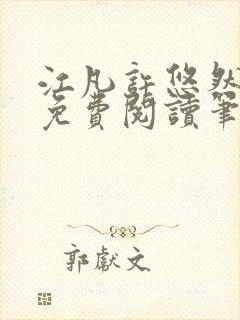 江凡許悠然
免費閱讀筆
郭獻文